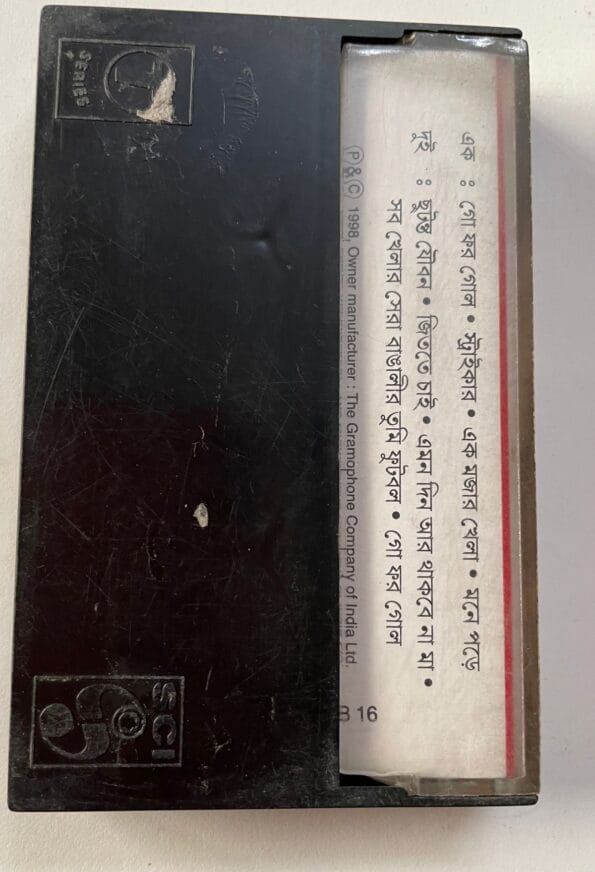 এক : গো ফর গোল • স্ট্রাইকার • এক মজার খেলা • মনে পড়ে
দুই : ছুটন্ত যৌবন • জিততে চাই • এমন দিন আর থাকবে না মা •
সব খেলার সেরা বাঙালীর তুমি ফুটবল • গো ফর গোল
Ⓟ & Ⓒ 1998, Owner manufacturer : The Gramophone Company of India Ltd.
B 16
T
SERIES
SCI